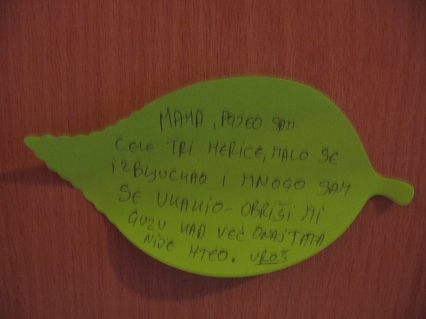 MAMA, POJEO SAM
CELE TRI MERICE, MALO SE
IZBLJUCKAO I MNOGO SAM
SE UKAKIO - OBRIŠI MI
GUZU KAD VEĆ ONAJ TATA
NIJE HTEO. UROŠ